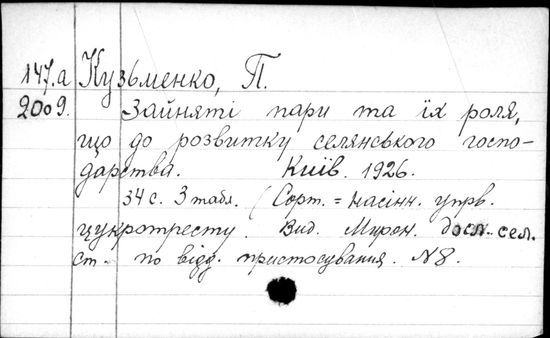 147.а Кузьменко, П.
2009. Зайняті пари та їх роля,
що до розвитку селянського госпо-
дарства. Київ. 1926.
34 с. 3 табл. (Сорт. = насінн. упрв.
цукротресту. Вид. Мирон. досл. сел.
ст. по відд. пристосування. N8.